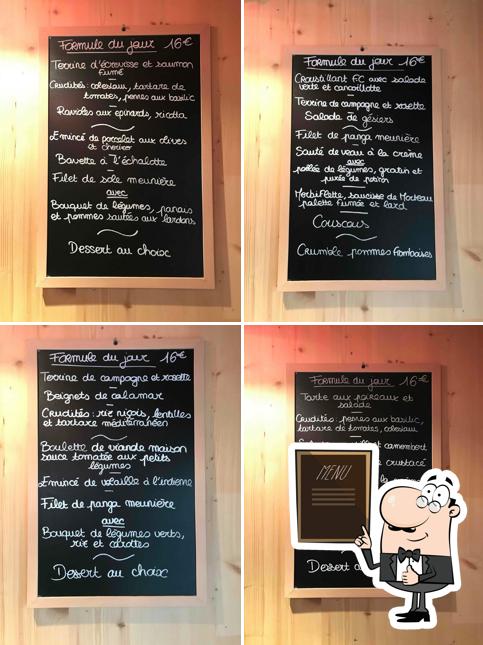 Formule du jour 16€
Terrine d'écrevisse et saumon
fumé
Crudités: coleslaw, tartare de
tomates, pennes aux basilic
Ravioles aux épinards, ricotta
Emincé de porcelet aux olives
et chorizo
Bavette à l'échalotte
Filet de sole meunière
avec
Bouquet de légumes, panais
et pommes sautées aux lardons
Dessert au choix
Formule du jour 16€
Croustillant F.C avec salade
verte et cancoillotte
Terrine de campagne et rosette
Salade de gésiers
Filet de panga meunière
Sauté de veau à la crème
avec
poêlée de légumes, gratin et
purée de potiron
Morbiflette, saucisse de Morteau
palette fumée et lard
Couscous
Crumble pommes framboises
Formule du jour 16€
Terrine de campagne et rosette
Beignets de calamar
Crudités: riz niçois, lentilles
et tartare méditerranéen
Boulette de viande maison
sauce tomatée aux petits
légumes
Emincé de volaille à l'indienne
Filet de panga meunière
avec
Bouquet de légumes verts,
riz et carottes
Dessert au choix
Formule du jour 16€
Tarte aux poireaux et
salade
Crudités: pennes au basilic,
tartare de tomates, coleslaw
camembert
crustacé
MENU
Dessert